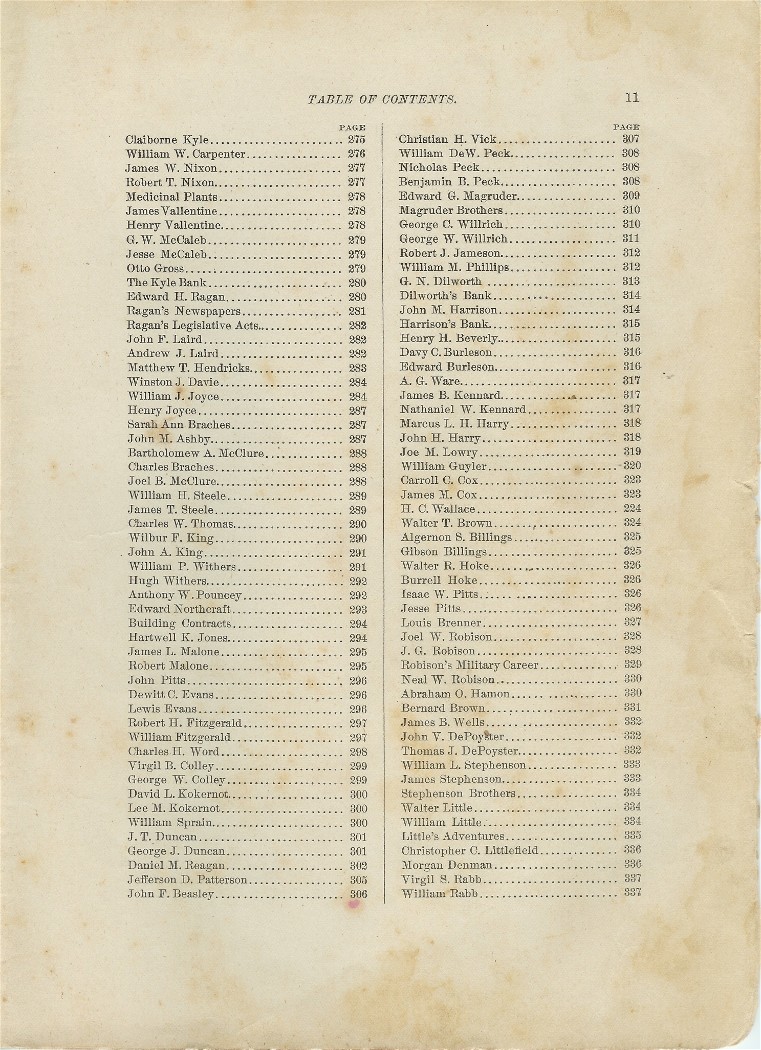 TABLE OF CONTENTS. 11
PAGE
Claiborne Kyle........................ 275
William W. Carpenter................. 276
James W. Nixon...................... 277
Robert T. Nixon....................... 277
Medicinal Plants...................... 278
James Vallentine...................... 278
Henry Vallentine...................... 278
G. W. McCaleb........................ 279
Jesse McCaleb........................ 279
Otto Gross............................ 279
The Kyle Bank........................ 280
Edward H. Ragan..................... 280
Ragan's Newspapers.................. 281
Ragan's Legislative Acts.............. 282
John F. Laird......................... 282
Andrew J. Laird...................... 282
Matthew T. Hendricks................ 283
Winston J. Davie..................... 284
William J. Joyce...................... 284
Henry Joyce.......................... 287
Sarah Ann Braches................... 287
John M. Ashby....................... 287
Bartholomew A. McClure............. 288
Charles Braches...................... 288
Joel B. McClure....................... 288
William H. Steele..................... 289
James T. Steele....................... 289
Charles W. Thomas................... 290
Wilbur F. King....................... 290
John A. King......................... 291
William P. Withers................... 291
Hugh Withers........................ 292
Anthony W. Pouncey................. 292
Edward Northcraft................... 293
Building Contracts................... 294
Hartwell K. Jones.................... 294
James L. Malone..................... 295
Robert Malone....................... 295
John Pitts............................ 296
Dewitt C. Evans...................... 296
Lewis Evans.......................... 296
Robert H. Fitzgerald................. 297
William Fitzgerald................... 297
Charles H. Word..................... 298
Virgil B. Colley....................... 299
George W. Colley..................... 299
David L. Kokernot.................... 300
Lee M. Kokernot..................... 300
William Sprain....................... 300
J. T. Duncan.......................... 301
George J. Duncan..................... 301
Daniel M. Reagan.................... 302
Jefferson D. Patterson................ 305
John F. Beasley....................... 306
PAGE
Christian H. Vick..................... 307
William DeW. Peck................... 308
Nicholas Peck........................ 308
Benjamin B. Peck..................... 308
Edward G. Magruder................. 309
Magruder Brothers................... 310
George C. Willrich................... 310
George W. Willrich................... 311
Robert J. Jameson.................... 312
William M. Phillips................... 312
G. N. Dilworth ....................... 313
Dilworth's Bank...................... 314
John M. Harrison.................... 314
Harrison's Bank...................... 315
Henry H. Beverly..................... 315
Davy C. Burleson..................... 316
Edward Burleson..................... 316
A. G. Ware........................... 317
James B. Kennard.................... 317
Nathaniel W. Kennard............... 317
Marcus L. H. Harry................... 318
John H. Harry........................ 318
Joe M. Lowry........................ 319
William Guyler....................... 320
Carroll C. Cox........................ 323
James M. Cox........................ 323
H. C. Wallace......................... 224
Walter T. Brown...................... 324
Algernon S. Billings................... 325
Gibson Billings....................... 325
Walter R. Hoke....................... 326
Burrell Hoke......................... 326
Isaac W. Pitts........................ 326
Jesse Pitts............................ 326
Louis Brenner........................ 327
Joel W. Robison...................... 328
J. G. Robison......................... 328
Robison's Military Career............. 329
Neal W. Robison...................... 330
Abraham O. Hamon.................. 330
Bernard Brown....................... 331
James B. Wells....................... 332
John V. DePoyster.................... 332
Thomas J. DePoyster................. 332
William L. Stephenson................ 333
James Stephenson.................... 333
Stephenson Brothers.................. 334
Walter Little.......................... 334
William Little......................... 334
Little's Adventures.................... 335
Christopher C. Littlefield.............. 336
Morgan Denman...................... 336
Virgil S. Rabb........................ 337
William Rabb......................... 337